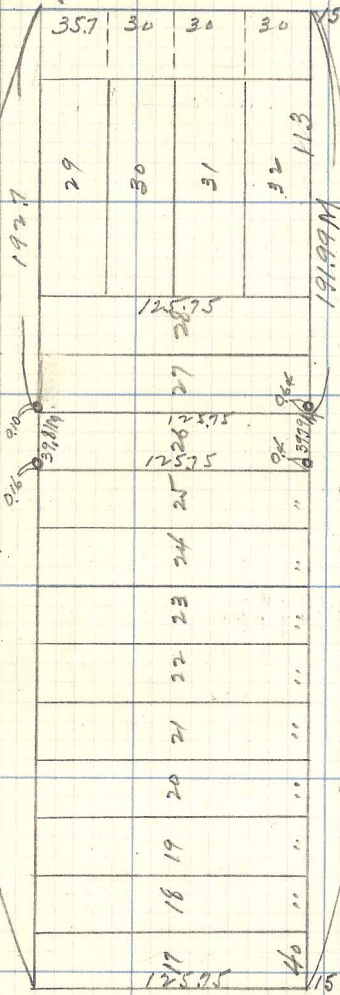 35.7 30 30 30 15
29 30 31 32 11.3
192.7 191.99 M
125.75
28
27
125.75
26
39.29
125.75
25 "
24 "
23 "
22 "
21 "
20 "
19 "
18 "
17 40
125.75 15